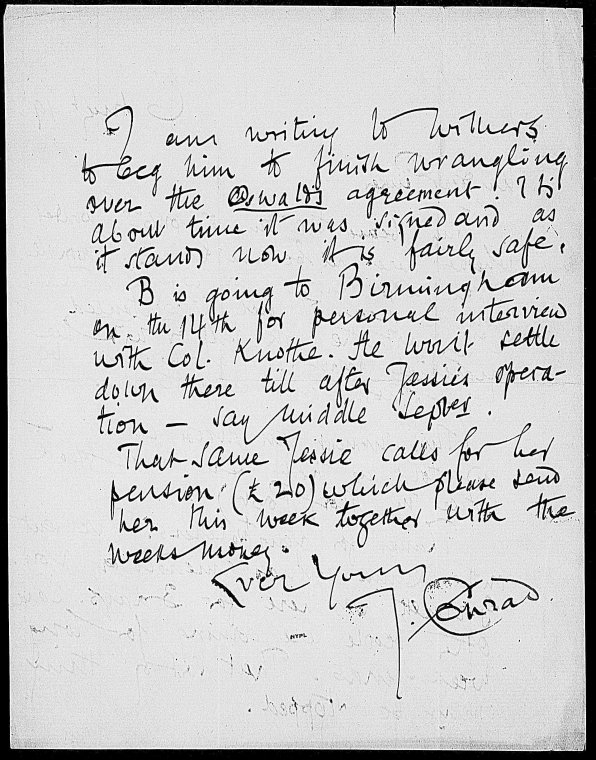 I am writing to Withers
to beg him to finish wrangling
over the Oswalds agreement. It is
about time it was signed and as
it stands now it is fairly safe.
B is going to Birmingham
on the 14th for personal interview
with Col. Knothe. He won't settle
down there till after Jessie's opera-
tion — say middle Septer.
That same Jessie calls for her
pension (£20) which please send
her this week together with the
weeks money.
Ever Yours
J. Conrad
NYPL